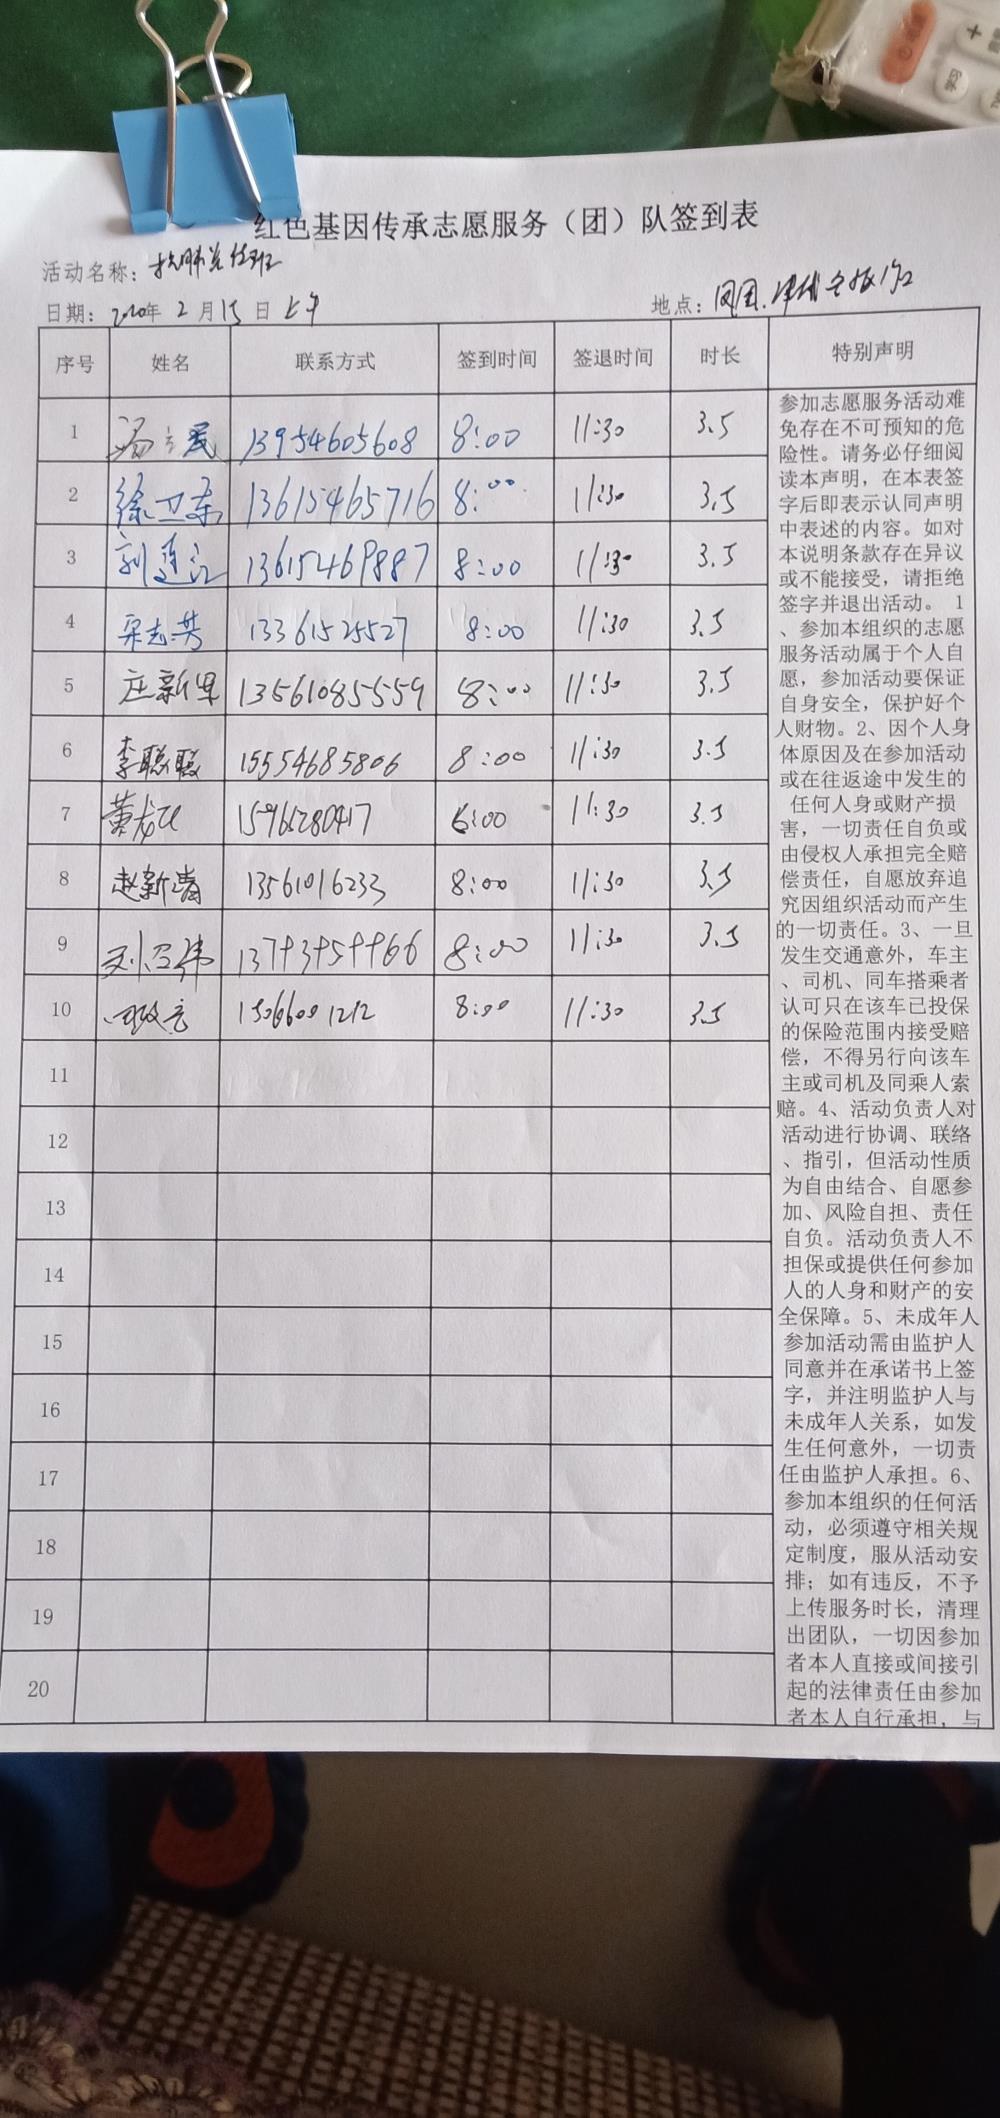 红色基因传承志愿服务（团）队签到表
活动名称：
日期：2020年 2 月 15 日 上午 地点：
序号 姓名 联系方式 签到时间 签退时间 时长 特别声明
1 13954605608 8:00 11:30 3.5
2 徐卫东 13615465716 8:00 11:30 3.5
3 刘连江 13615469887 8:00 11:30 3.5
4 宋志芳 13361525527 8:00 11:30 3.5
5 庄新 13561085559 8:00 11:30 3.5
6 李聪聪 15554685806 8:00 11:30 3.5
7 黄 15965280417 8:00 11:30 3.5
8 赵新清 13561016233 8:00 11:30 3.5
9 刘 伟 8:00 11:30 3.5
10 15066001212 8:00 11:30 3.5
11
12
13
14
15
16
17
18
19
20
参加志愿服务活动难
免存在不可预知的危
险性。请务必仔细阅
读本声明，在本表签
字后即表示认同声明
中表述的内容。如对
本说明条款存在异议
或不能接受，请拒绝
签字并退出活动。 1
、参加本组织的志愿
服务活动属于个人自
愿，参加活动要保证
自身安全，保护好个
人财物。2、因个人身
体原因及在参加活动
或在往返途中发生的
任何人身或财产损
害，一切责任自负或
由侵权人承担完全赔
偿责任，自愿放弃追
究因组织活动而产生
的一切责任。3、一旦
发生交通意外，车主
、司机、同车搭乘者
认可只在该车已投保
的保险范围内接受赔
偿，不得另行向该车
主或司机及同乘人索
赔。4、活动负责人对
活动进行协调、联络
、指引，但活动性质
为自由结合、自愿参
加、风险自担、责任
自负。活动负责人不
担保或提供任何参加
人的人身和财产的安
全保障。5、未成年人
参加活动需由监护人
同意并在承诺书上签
字，并注明监护人与
未成年人关系，如发
生任何意外，一切责
任由监护人承担。6、
参加本组织的任何活
动，必须遵守相关规
定制度，服从活动安
排；如有违反，不予
上传服务时长，清理
出团队，一切因参加
者本人直接或间接引
起的法律责任由参加
者本人自行承担，与